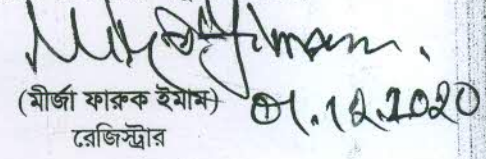 (মীর্জা ফারুক ইমাম) 01.12.2020
রেজিস্ট্রার